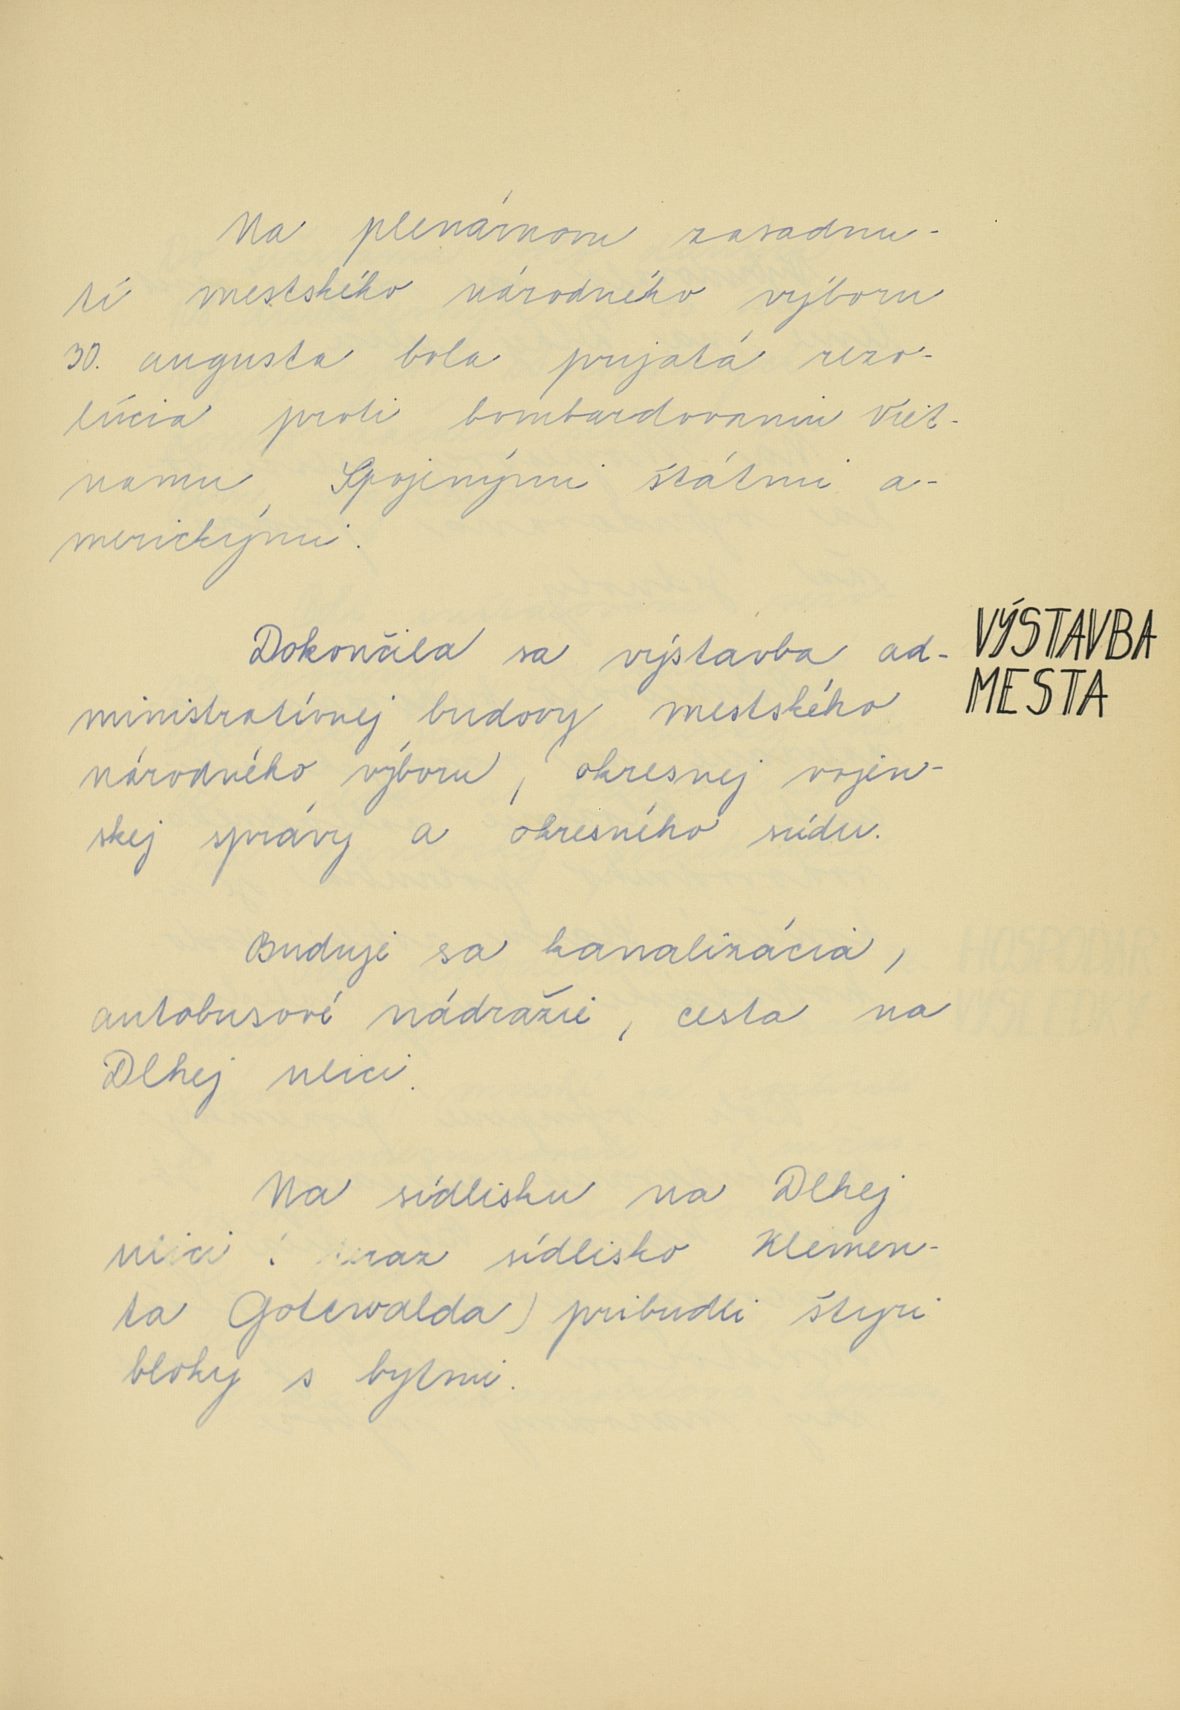 Na plenárnom zasadnu-
tí mestského národného výboru
30. augusta bola prijatá rezo-
lúcia proti bombardovaniu Viet-
namu Spojenými štátmi a-
merickými.
VÝSTAVBA
MESTA
Dokončila sa výstavba ad-
ministratívnej budovy mestského
národného výboru, okresnej vojen-
skej správy a okresného súdu.
Buduje sa kanalizácia,
autobusové nádražie, cesta na
Dlhej ulici.
Na sídlisku na Dlhej
ulici (teraz sídlisko Klemen-
ta Gotwalda) pribudli štyri
bloky s bytmi.